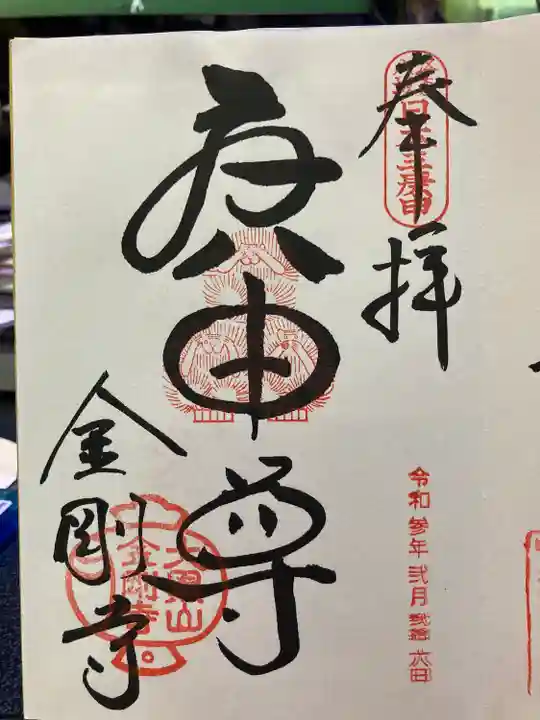 奉拝
日本三庚申
令和参年弐月弐拾六日
庚申尊
金剛寺
金剛寺